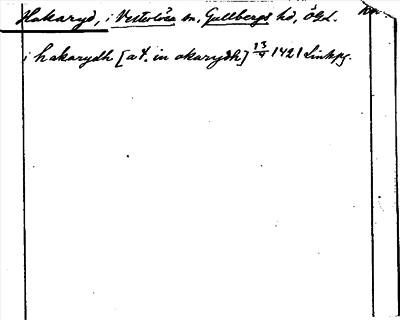 Hakaryd, i Vesterlösa sn, Gullbergs hd, Ögl.
i hakarydh [at. in akarydh] 13/9 1421 Linkpg.